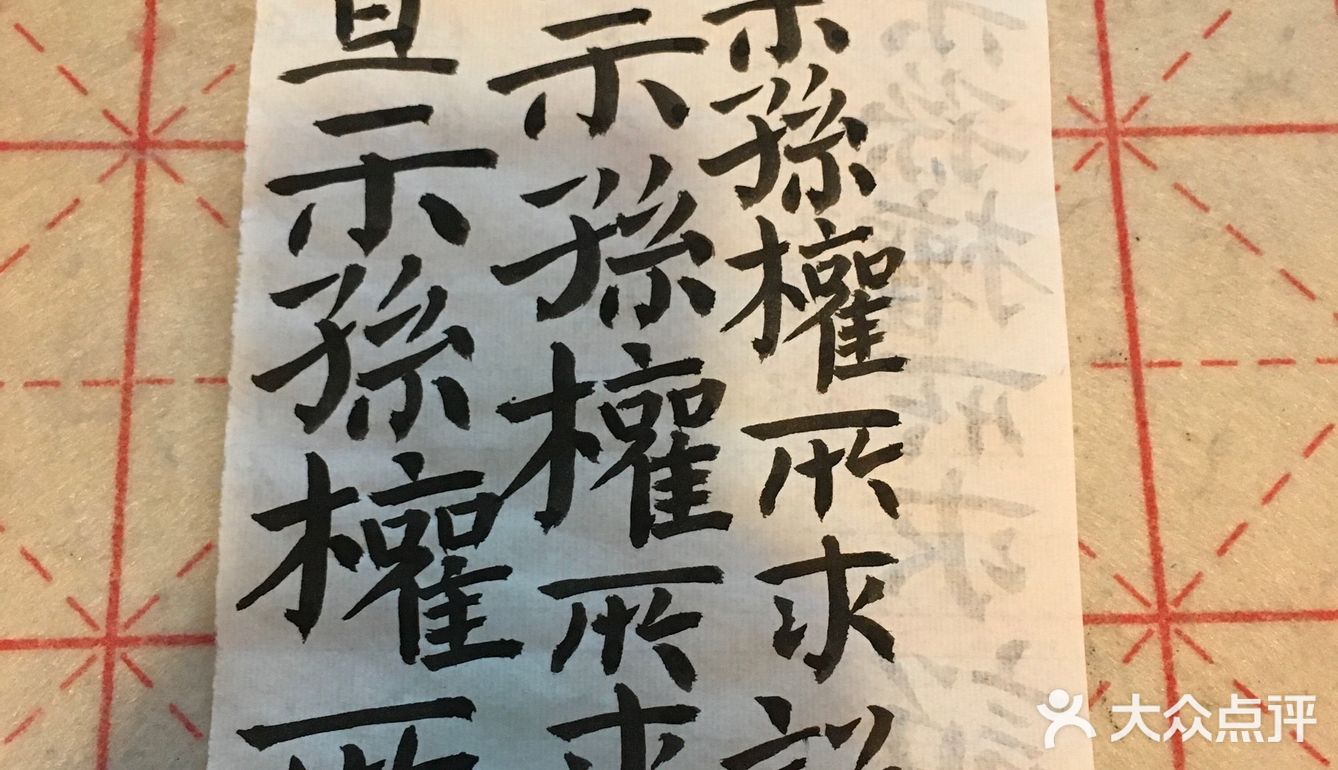 示孫權所求詔
示孫權所求
宣示孫權所
大众点评